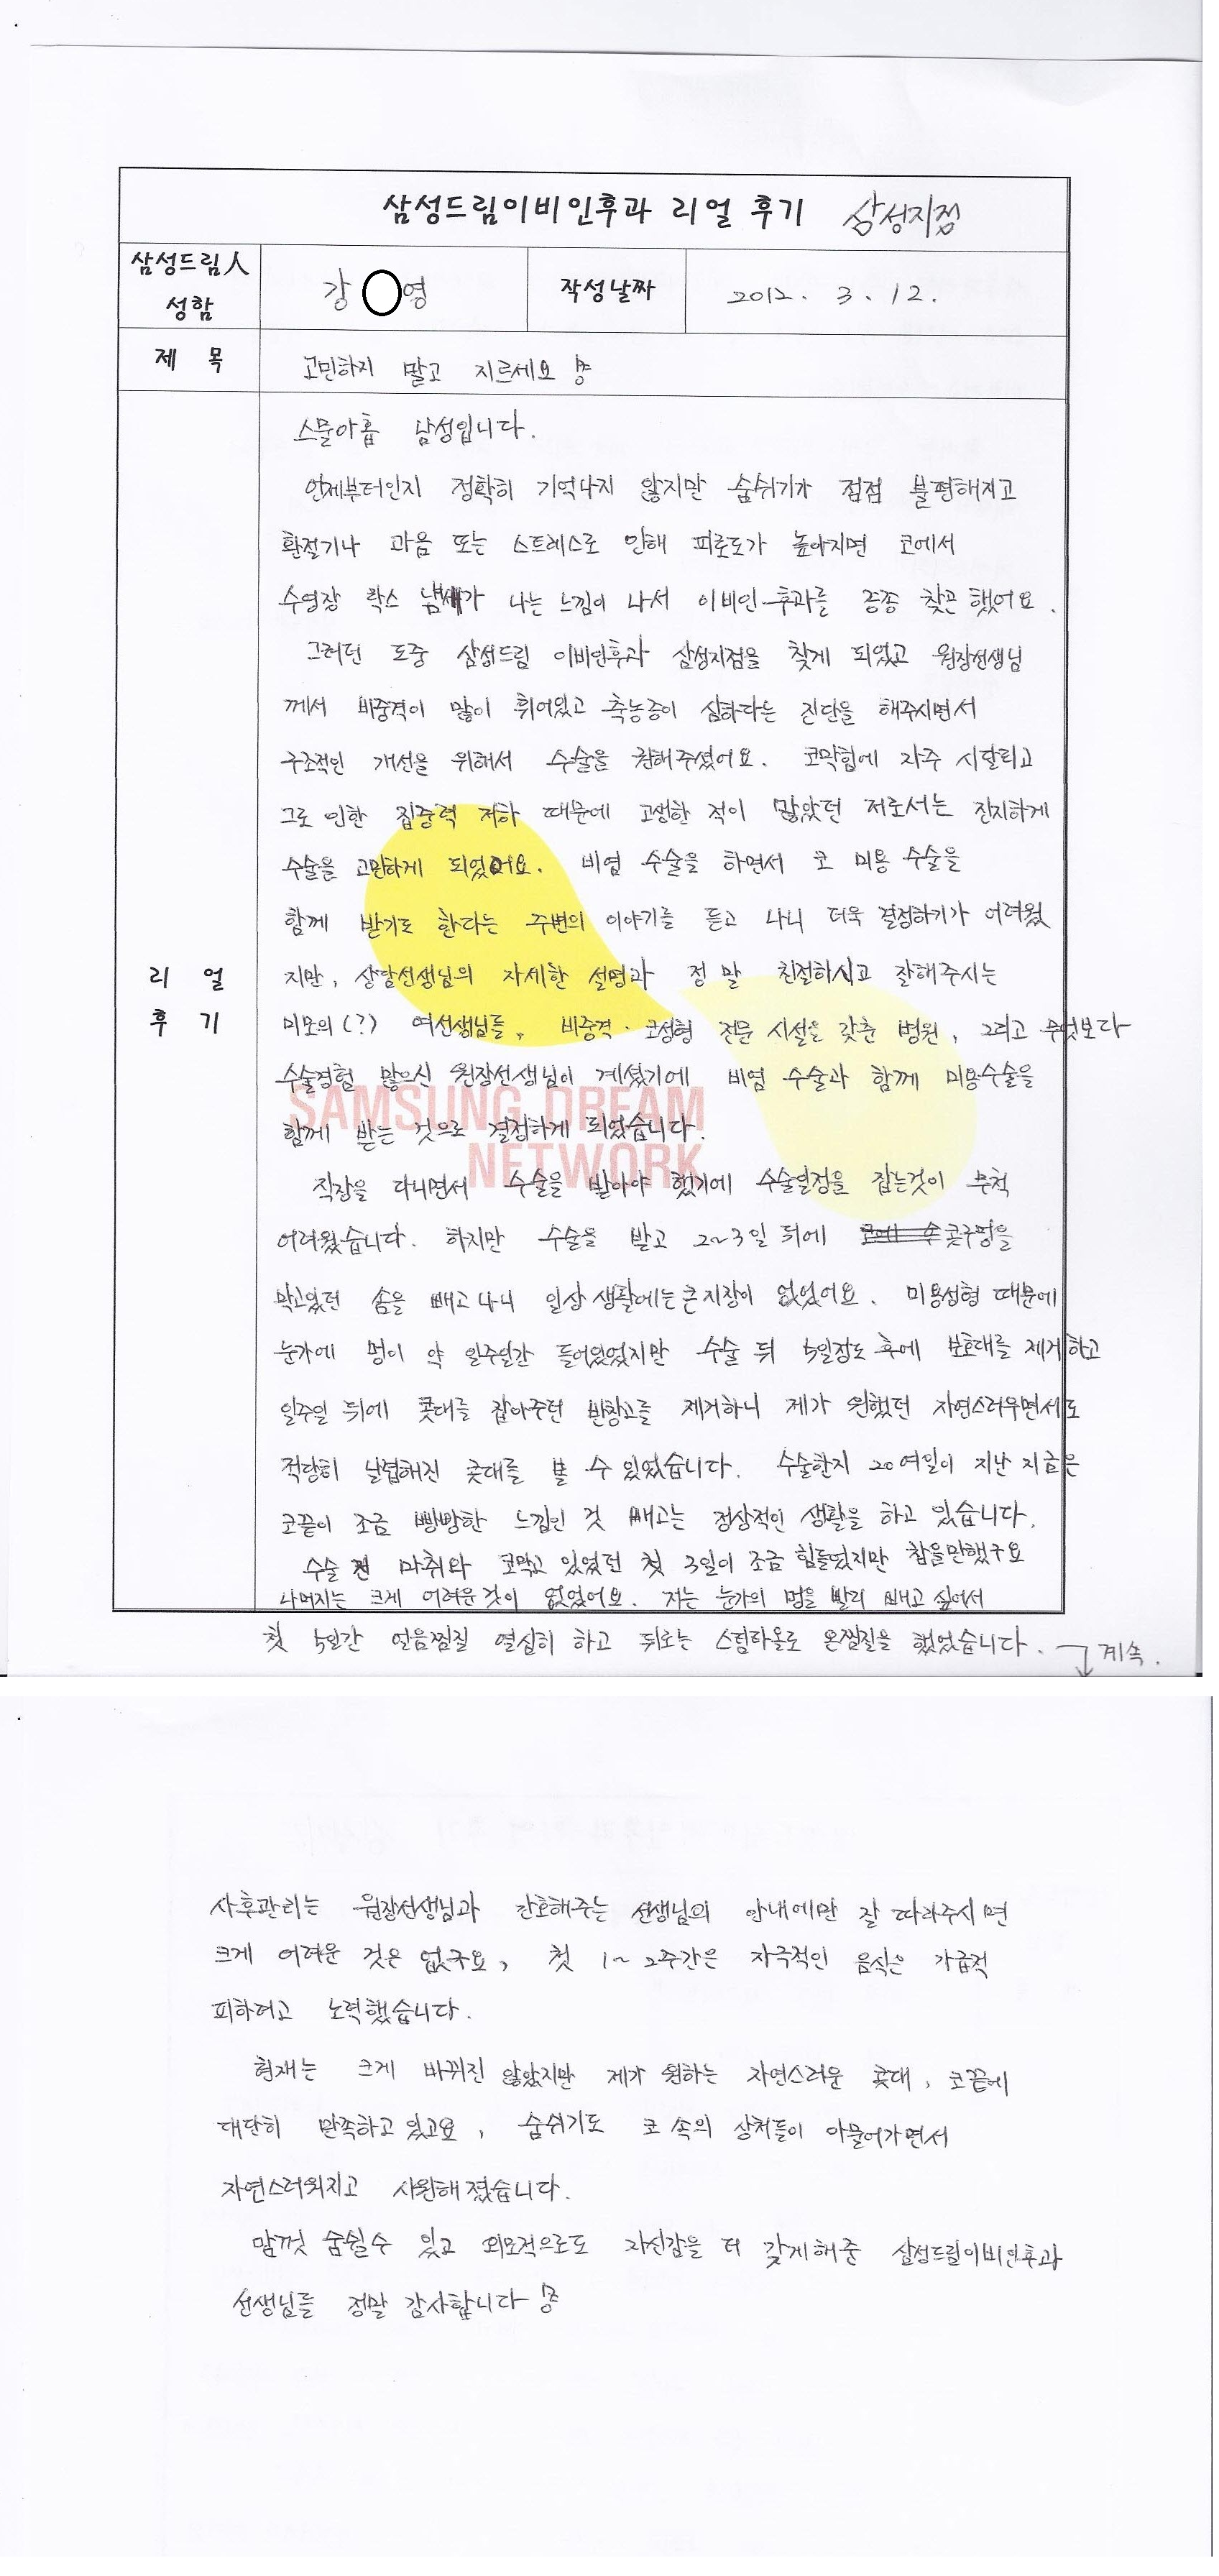 삼성드림이비인후과 리얼 후기 삼성지점
삼성드림人 성함
강 영
작성날짜
2012. 3. 12.
제 목
고민하지 말고 지르세요
리 얼
후 기
스물아홉 남성입니다.
언제부터인지 정확히 기억나지 않지만 숨쉬기가 점점 불편해지고
환절기나 과음 또는 스트레스로 인해 피로도가 높아지면 코에서
수영장 락스 냄새가 나는 느낌이 나서 이비인후과를 종종 찾곤 했어요.
그러던 도중 삼성드림 이비인후과 삼성지점을 찾게 되었고 원장선생님
께서 비중격이 많이 휘어있고 축농증이 심하다는 진단을 해주시면서
구조적인 개선을 위해서 수술을 권해주셨어요. 코막힘에 자주 시달리고
그로 인한 집중력 저하 때문에 고생한 적이 많았던 저로서는 진지하게
수술을 고민하게 되었어요. 비염 수술을 하면서 코 미용 수술을
함께 받기도 한다는 주변의 이야기를 듣고 나니 더욱 결정하기가 어려웠
지만, 상담선생님의 자세한 설명과 정말 친절하시고 잘해주시는
미모의(?) 여선생님들, 비중격·코성형 전문 시설을 갖춘 병원, 그리고 무엇보다
수술경험 많으신 원장선생님이 계셨기에 비염 수술과 함께 미용수술을
함께 받는 것으로 결정하게 되었습니다.
SAMSUNG DREAM
NETWORK
직장을 다니면서 수술을 받아야 했기에 수술일정을 잡는것이 무척
어려웠습니다. 하지만 수술을 받고 2~3일 뒤에 콧구멍을
막고있던 솜을 빼고 나니 일상 생활에는 큰 지장이 없었어요. 미용성형 때문에
눈가에 멍이 약 일주일간 들어있었지만 수술 뒤 5일정도 후에 보호대를 제거하고
일주일 뒤에 콧대를 잡아주던 반창고를 제거하니 제가 원했던 자연스러우면서도
적당히 날렵해진 콧대를 볼 수 있었습니다. 수술한지 20여일이 지난 지금은
코끝이 조금 빵빵한 느낌인 것 빼고는 정상적인 생활을 하고 있습니다.
수술 전 마취와 코막고 있었던 첫 3일이 조금 힘들었지만 참을만했구요
나머지는 크게 어려운 것이 없었어요. 저는 눈가의 멍을 빨리 빼고 싶어서
첫 5일간 얼음찜질 열심히 하고 뒤로는 스팀타올로 온찜질을 했었습니다. 계속.
사후관리는 원장선생님과 간호해주는 선생님의 안내에만 잘 따라주시면
크게 어려운 것은 없구요, 첫 1~2주간은 자극적인 음식은 가급적
피하려고 노력했습니다.
현재는 크게 바뀌진 않았지만 제가 원하는 자연스러운 콧대, 코끝에
대단히 만족하고 있고요, 숨쉬기도 코 속의 상처들이 아물어가면서
자연스러워지고 시원해졌습니다.
맘껏 숨쉴수 있고 외모적으로도 자신감을 더 갖게해준 삼성드림이비인후과
선생님들 정말 감사합니다